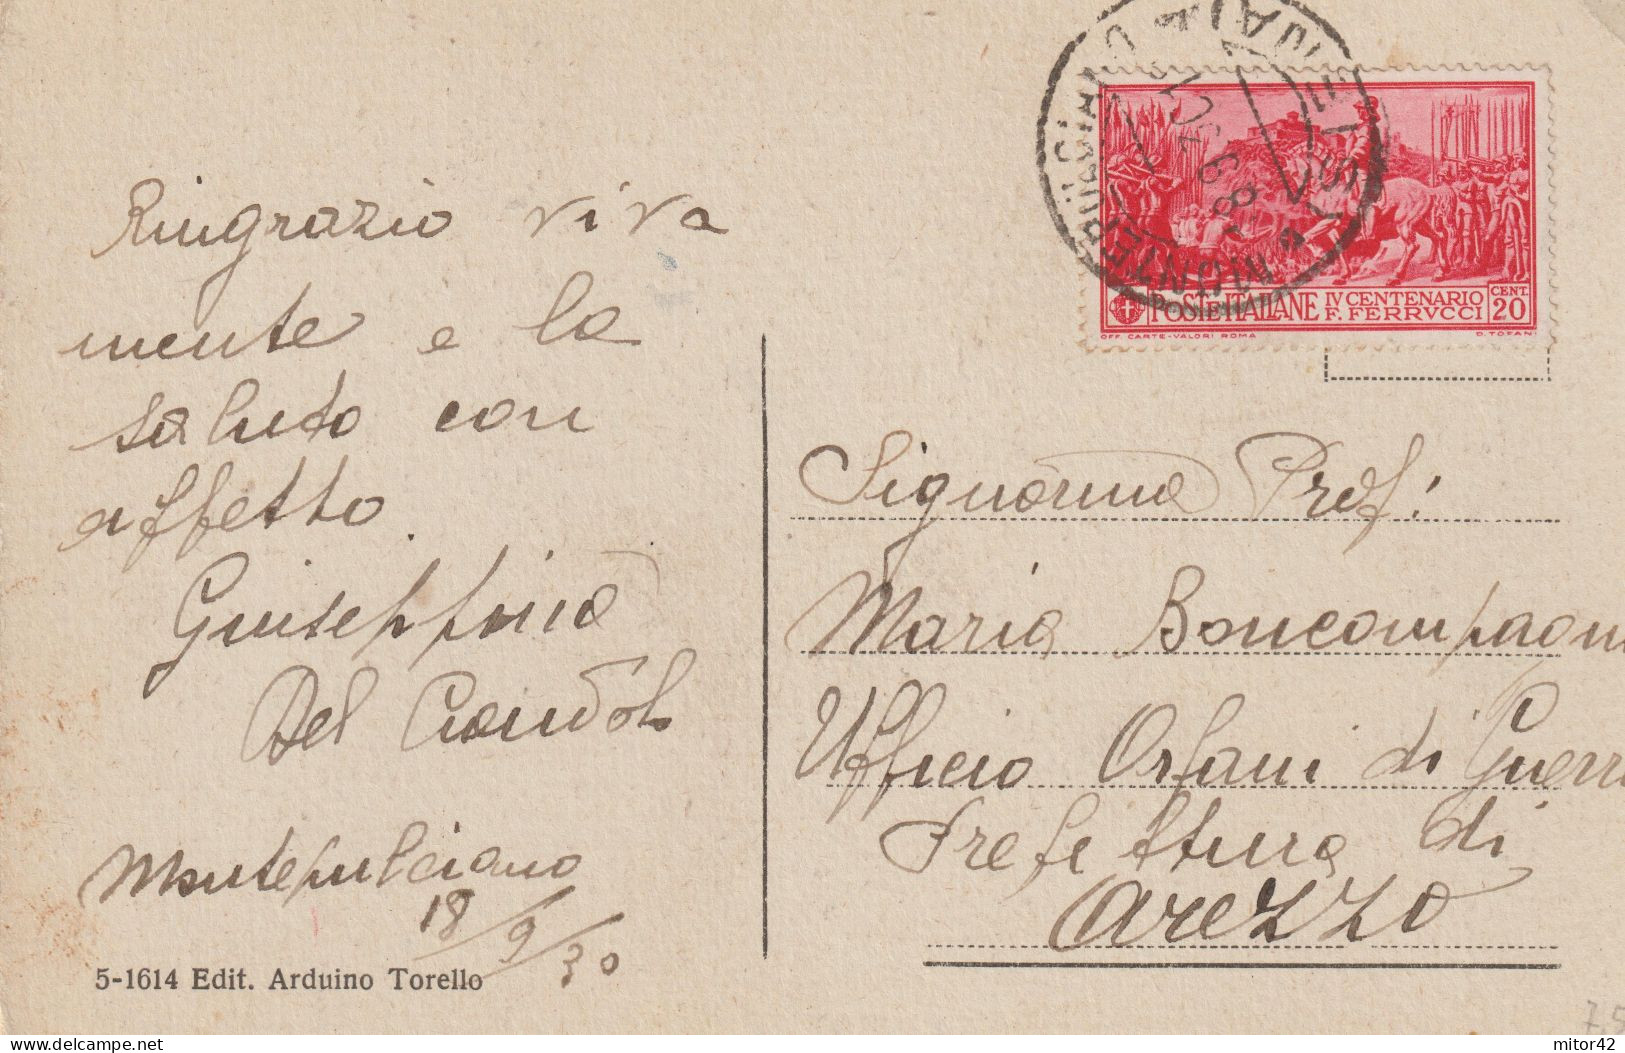 Ringrazio viva
mente e la
saluto con
affetto
Giuseppina
Del
Montepulciano
18/9/30
5-1614 Edit. Arduino Torello
MONTEPULCIANO
18.9
POSTE ITALIANE IV CENTENARIO F. FERRVCCI CENT. 20
OFF. CARTE-VALORI ROMA D. TOFANI
Signorina Prof:
Maria Boncompagni
Ufficio Orfani di Guerra
Prefettura di
Arezzo
7,5
delcampe.net
mitor42